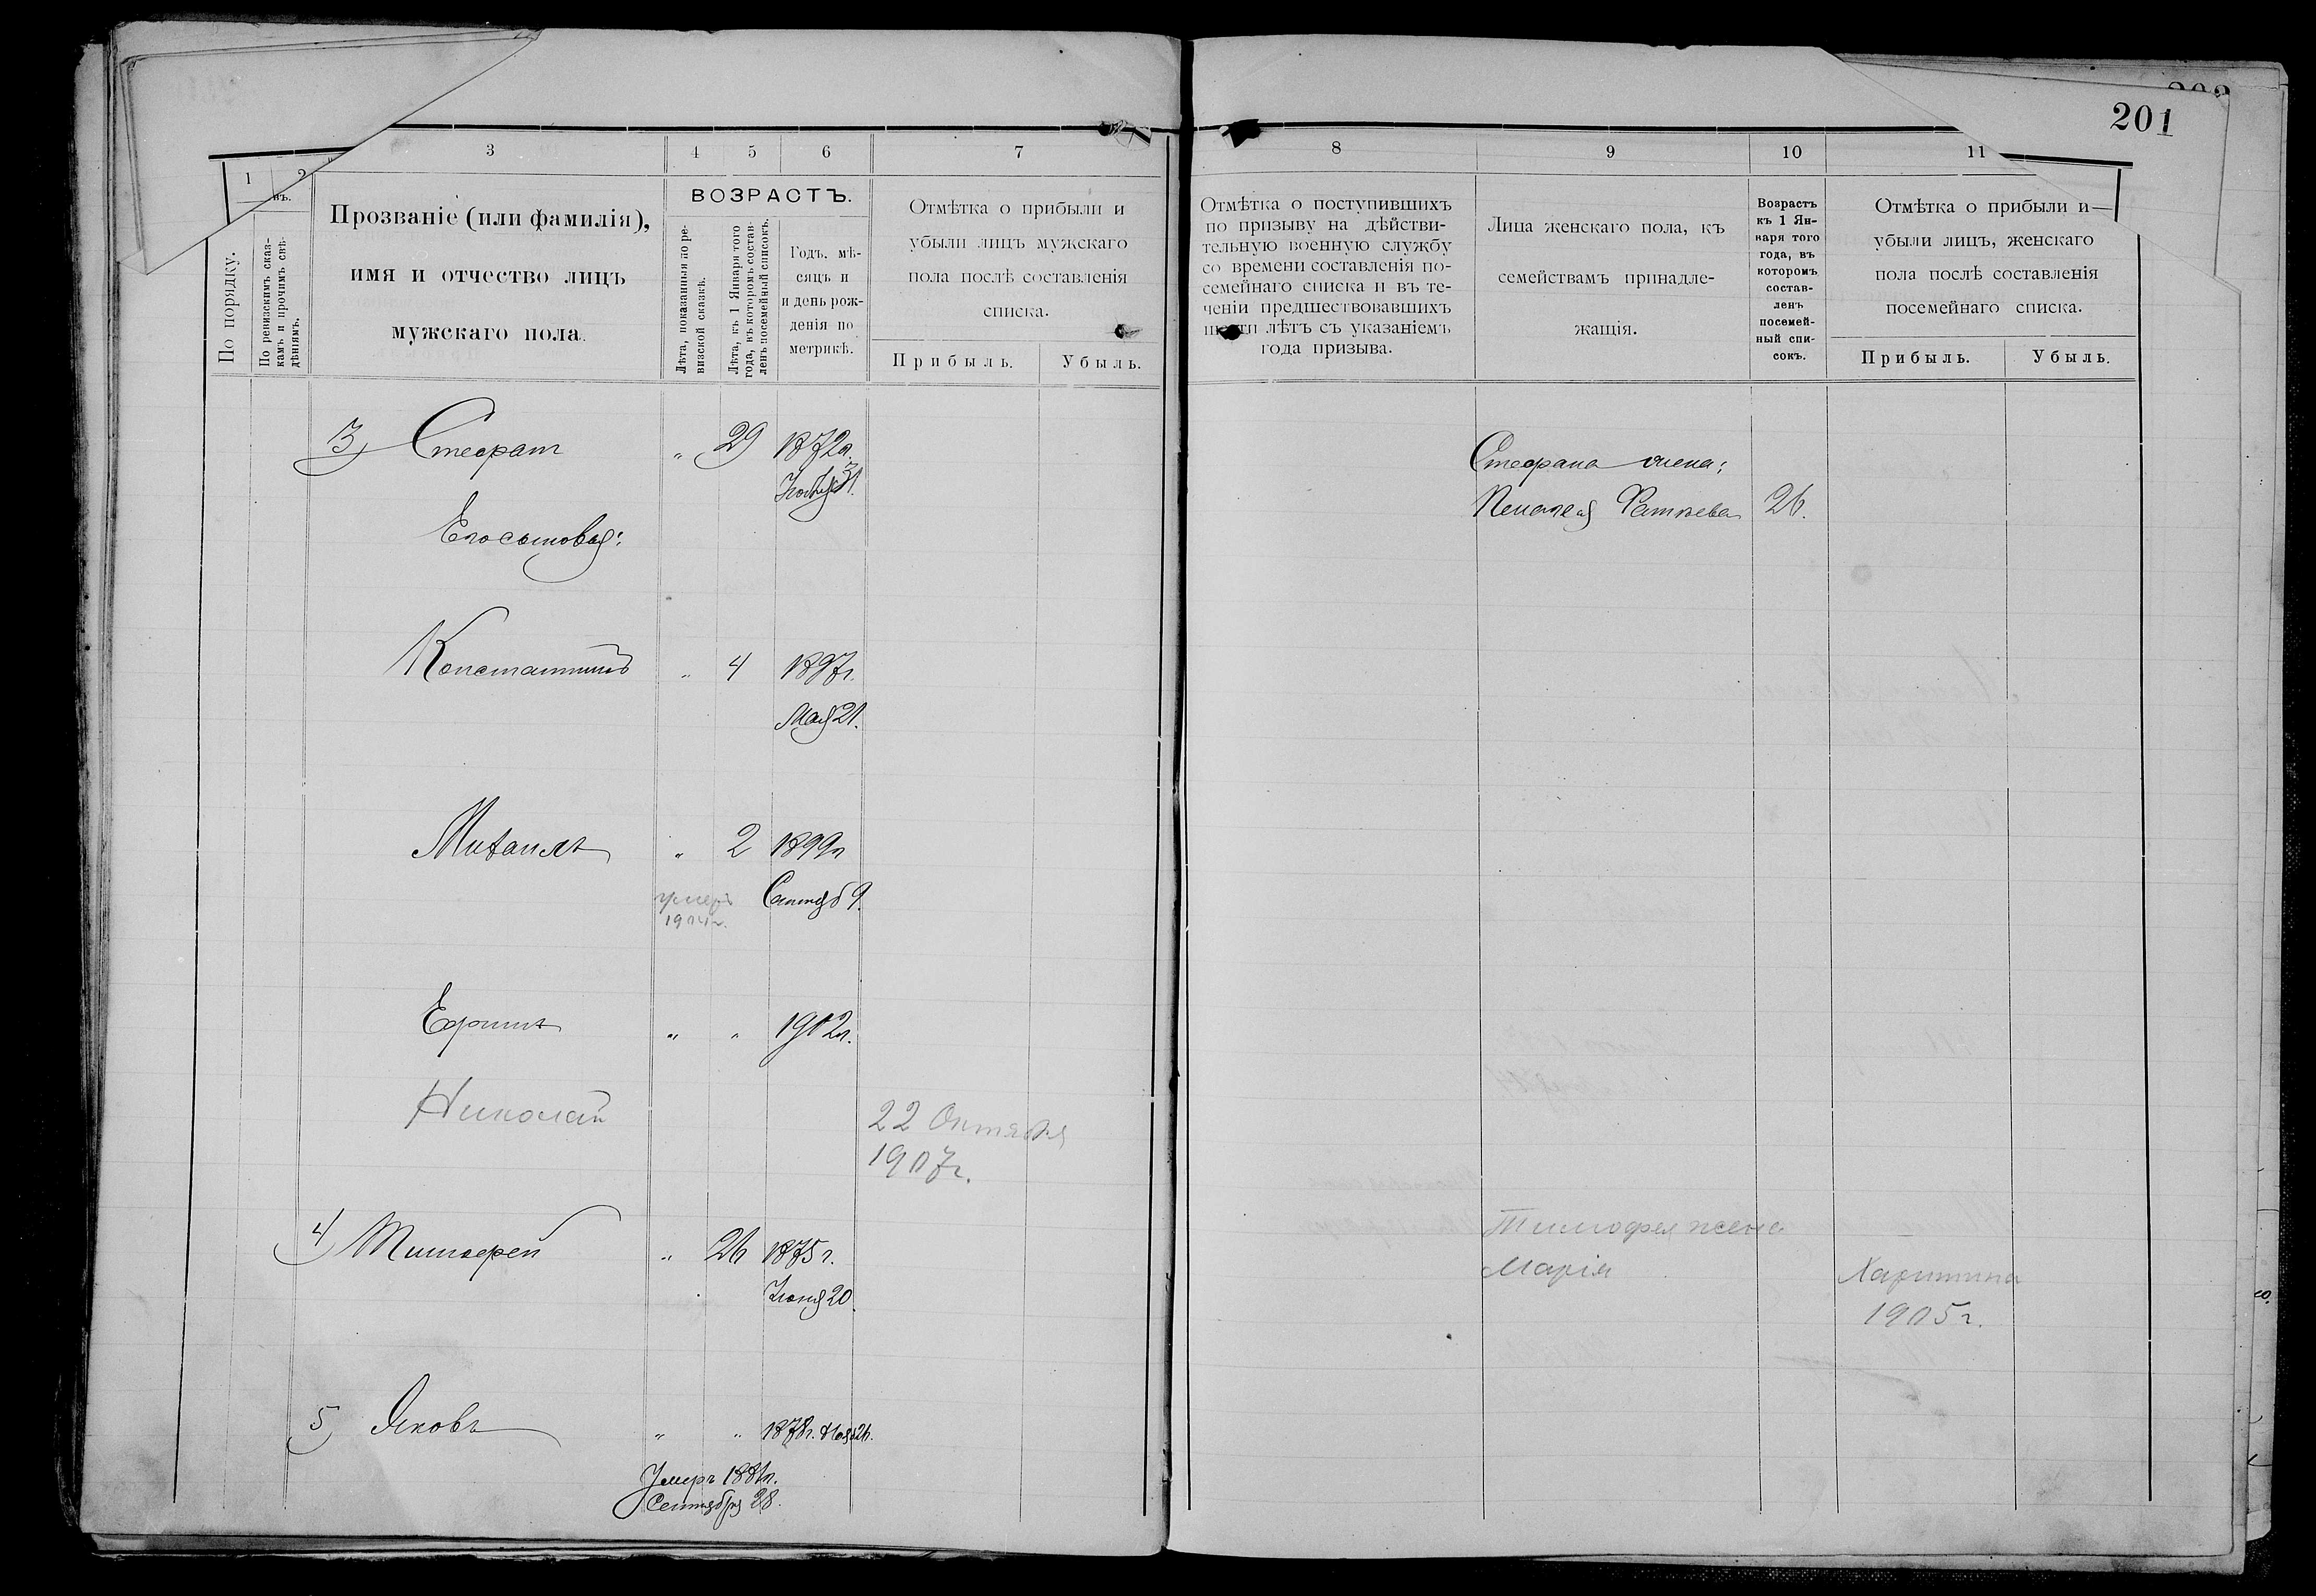 201
1 2 3 4 5 6 7
По порядку.
По ревизскимъ сказ-
камъ и прочимъ свѣ-
дѣніямъ.
Прозваніе (или фамилія),
имя и отчество лицъ
мужскаго пола.
ВОЗРАСТЪ.
Лѣта, показанныя по ре-
визской сказкѣ.
Лѣта, къ 1 Января того
года, въ которомъ состав-
ленъ посемейный списокъ.
Годъ, мѣ-
сяцъ и
и день рож-
денія по
метрикѣ.
Отмѣтка о прибыли и
убыли лицъ мужскаго
пола послѣ составленія
списка.
Прибыль. Убыль.
3) Стефанъ „ 29 1872г.
31
Его сыновья:
Константинъ „ 4 1897г.
Мая 21.
Михаилъ „ 2 1899г
умеръ Сентяб 9.
1904г.
Ефимъ „ „ 1902г.
Николай
22 Октября
1907г.
4) Тимофей „ 26 1875г.
Іюня 20.
5) Яковъ „ „ 1878г. 26.
Умеръ 1881г.
Сентября 28.
8 9 10 11
Отмѣтка о поступившихъ
по призыву на дѣйстви-
тельную военную службу
со времени составленія по-
семейнаго списка и въ те-
ченіи предшествовавшихъ
шести лѣтъ съ указаніемъ
года призыва.
Лица женскаго пола, къ
семействамъ принадле-
жащія.
Возрастъ
къ 1 Ян-
варя того
года, въ
которомъ
состав-
ленъ
посемей-
ный спи-
сокъ.
Отмѣтка о прибыли и
убыли лицъ, женскаго
пола послѣ составленія
посемейнаго списка.
Прибыль. Убыль.
Стефана жена:
Пелагея Фатѣева 26.
Тимофея жена
Марія Харитина
1905г.